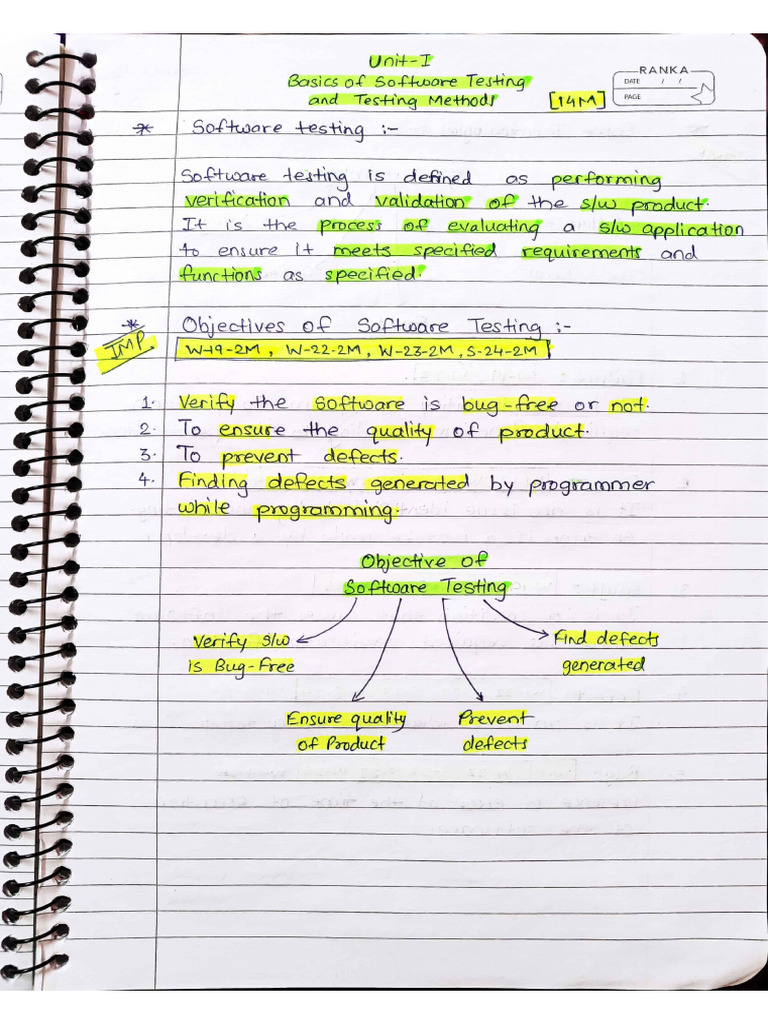 Unit-I
Basics of Software Testing
and Testing Methods [14M]
RANKA
DATE / /
PAGE
* Software testing :-
Software testing is defined as performing
verification and validation of the s/w product.
It is the process of evaluating a s/w application
to ensure it meets specified requirements and
functions as specified.
* Objectives of Software Testing :-
IMP
W-19-2M, W-22-2M, W-23-2M, S-24-2M
1. Verify the software is bug-free or not.
2. To ensure the quality of product.
3. To prevent defects.
4. Finding defects generated by programmer
while programming.
Objective of
Software Testing
Verify s/w
is Bug-Free
Ensure quality
of Product
Prevent
defects
Find defects
generated